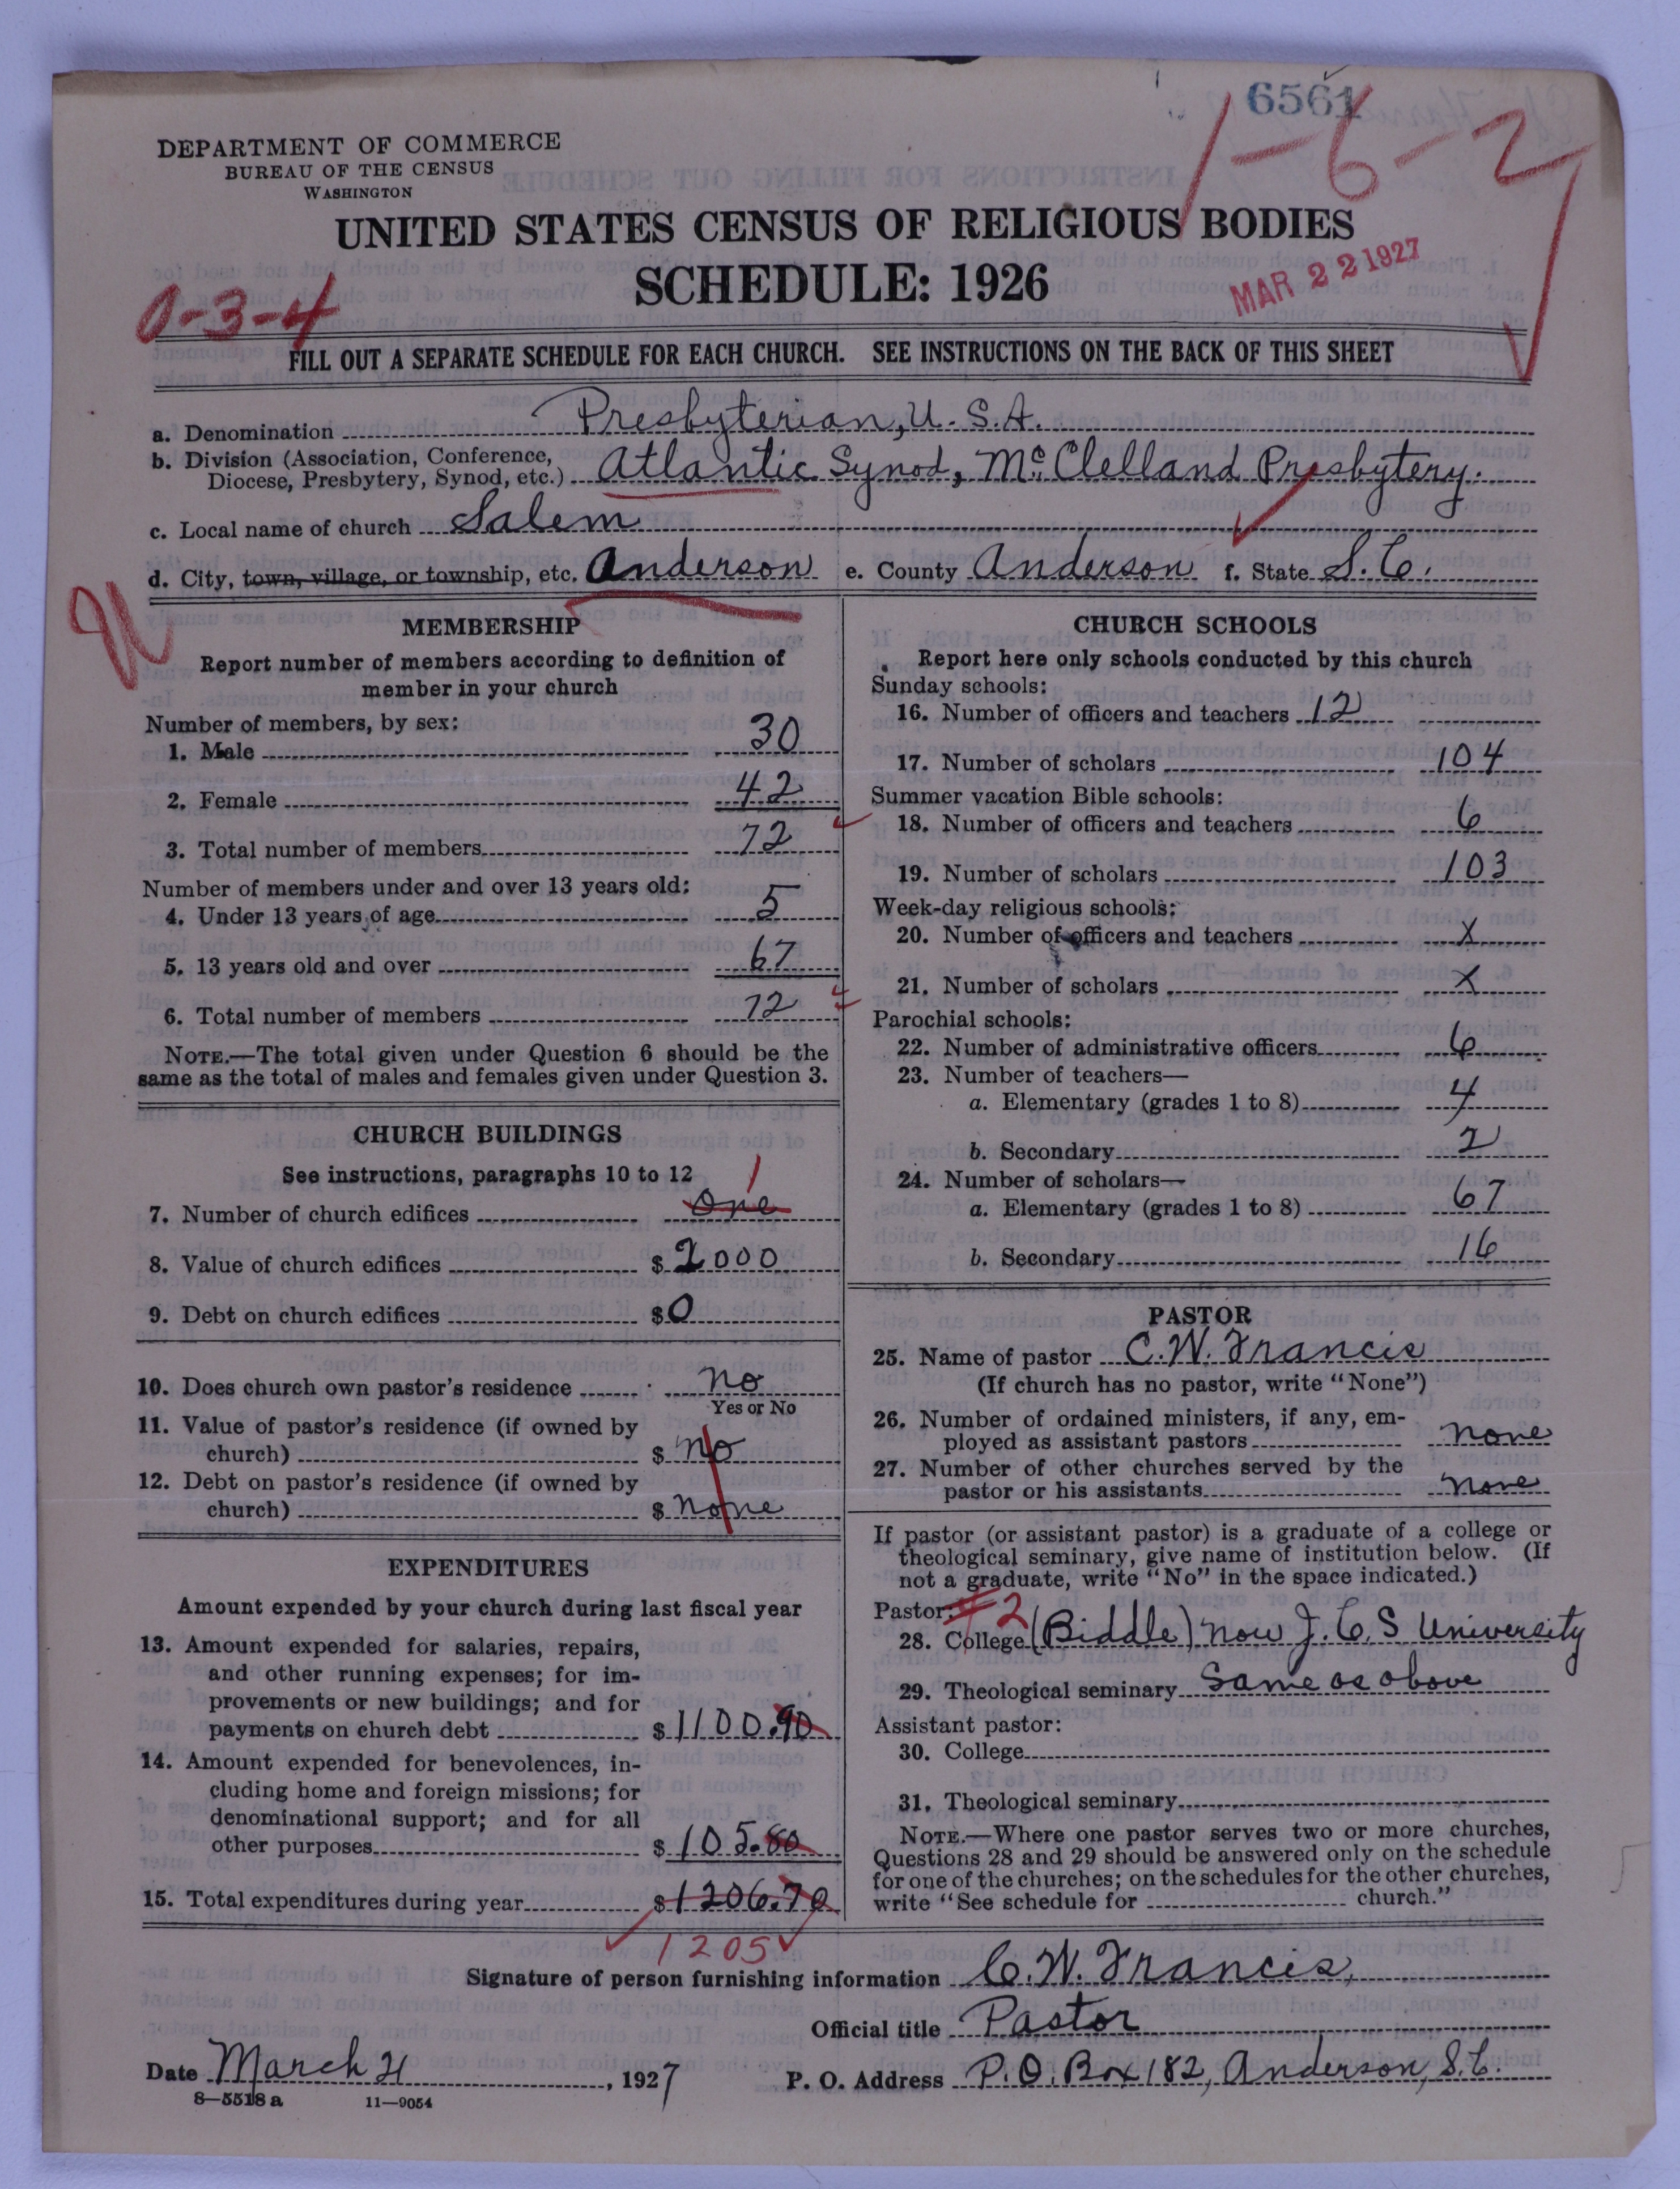 6561
1-6-2
DEPARTMENT OF COMMERCE
BUREAU OF THE CENSUS
WASHINGTON
UNITED STATES CENSUS OF RELIGIOUS BODIES
SCHEDULE: 1926
MAR 22 1927
0-3-4
FILL OUT A SEPARATE SCHEDULE FOR EACH CHURCH. SEE INSTRUCTIONS ON THE BACK OF THIS SHEET
a. Denomination Presbyterian, U.S.A.
b. Division (Association, Conference,
Diocese, Presbytery, Synod, etc.) Atlantic Synod, McClelland Presbytery.
c. Local name of church Salem
d. City, town, village, or township, etc. Anderson e. County Anderson f. State S.C.
MEMBERSHIP
Report number of members according to definition of
member in your church
Number of members, by sex:
1. Male 30
2. Female 42
3. Total number of members 72
Number of members under and over 13 years old:
4. Under 13 years of age 5
5. 13 years old and over 67
6. Total number of members 72
NOTE.—The total given under Question 6 should be the
same as the total of males and females given under Question 3.
CHURCH BUILDINGS
See instructions, paragraphs 10 to 12
1
7. Number of church edifices One
8. Value of church edifices $ 2000
9. Debt on church edifices $ 0
10. Does church own pastor's residence No
Yes or No
11. Value of pastor's residence (if owned by
church) $ No
12. Debt on pastor's residence (if owned by
church) $ None
EXPENDITURES
Amount expended by your church during last fiscal year
13. Amount expended for salaries, repairs,
and other running expenses; for im-
provements or new buildings; and for
payments on church debt $ 1100.90
14. Amount expended for benevolences, in-
cluding home and foreign missions; for
denominational support; and for all
other purposes $ 105.80
15. Total expenditures during year $ 1206.70
1205
CHURCH SCHOOLS
Report here only schools conducted by this church
Sunday schools:
16. Number of officers and teachers 12
17. Number of scholars 104
Summer vacation Bible schools:
18. Number of officers and teachers 6
19. Number of scholars 103
Week-day religious schools:
20. Number of officers and teachers X
21. Number of scholars X
Parochial schools:
22. Number of administrative officers 6
23. Number of teachers—
a. Elementary (grades 1 to 8) 4
b. Secondary 2
24. Number of scholars—
a. Elementary (grades 1 to 8) 67
b. Secondary 16
PASTOR
25. Name of pastor C.W. Francis
(If church has no pastor, write "None")
26. Number of ordained ministers, if any, em-
ployed as assistant pastors None
27. Number of other churches served by the
pastor or his assistants None
If pastor (or assistant pastor) is a graduate of a college or
theological seminary, give name of institution below. (If
not a graduate, write "No" in the space indicated.)
Pastor: 2
28. College (Biddle) now J.C.S University
29. Theological seminary Same as above
Assistant pastor:
30. College
31. Theological seminary
NOTE.—Where one pastor serves two or more churches,
Questions 28 and 29 should be answered only on the schedule
for one of the churches; on the schedules for the other churches,
write "See schedule for church."
Signature of person furnishing information C.W. Francis,
Official title Pastor
Date March 21, 1927 P. O. Address P.O. Box 182, Anderson, S.C.
8—5518 a 11—9054